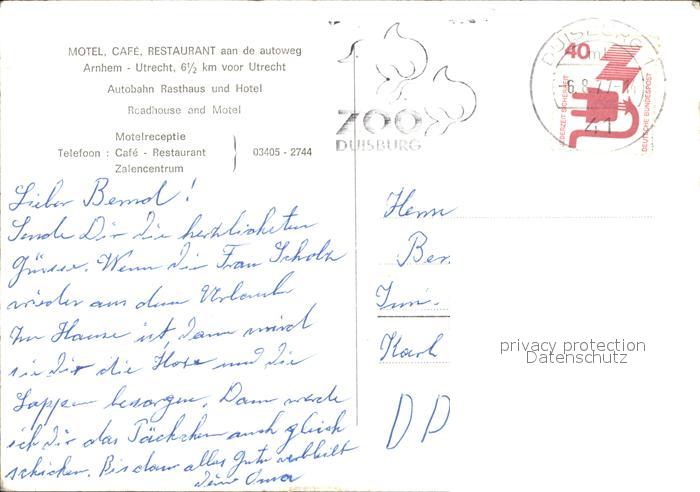 MOTEL, CAFÉ, RESTAURANT aan de autoweg
Arnhem - Utrecht, 6½ km voor Utrecht
Autobahn Rasthaus und Hotel
Roadhouse and Motel
Motelreceptie
Telefoon : Café - Restaurant 03405 - 2744
Zalencentrum
ZOO
DUISBURG
DUISBURG 1
6.8.77
41
40
JEDERZEIT SICHERHEIT
DEUTSCHE BUNDESPOST
Lieber Bernd!
Sende Dir die herzlichsten
Grüsse. Wenn die Frau Scholz
wieder aus dem Urlaub
zu Hause ist, dann wird
sie dir die Hose und die
Lappen besorgen. Dann werde
ich dir das Päckchen auch gleich
schicken. Bis dann alles Gute verbleibt
deine Oma
Herrn
Ber
Karl
DD
privacy protection
Datenschutz